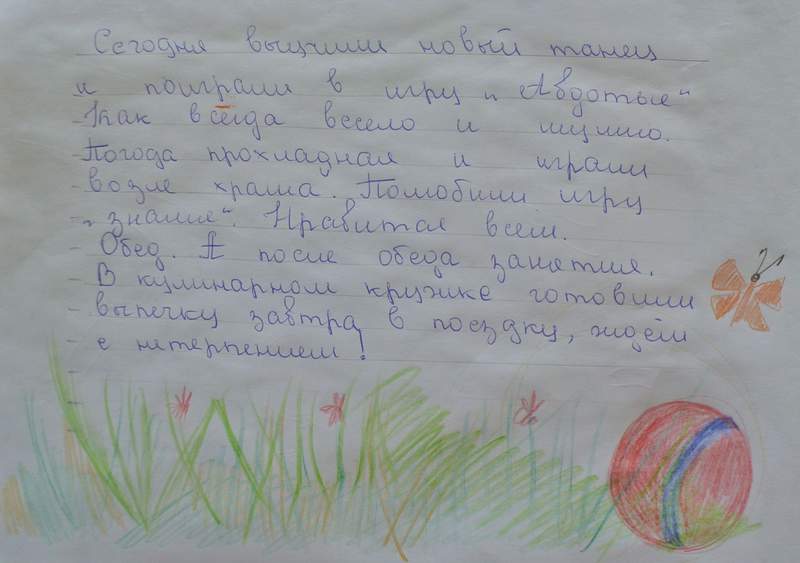 Сегодня выучили новый танец
и поиграли в игру „Авдотье"
Как всегда весело и шумно.
Погода прохладная и играли
возле храма. Полюбили игру
„знание". Нравится всем.
Обед. А после обеда занятия.
В кулинарном кружке готовили
выпечку завтра в поездку, ждём
с нетерпением!